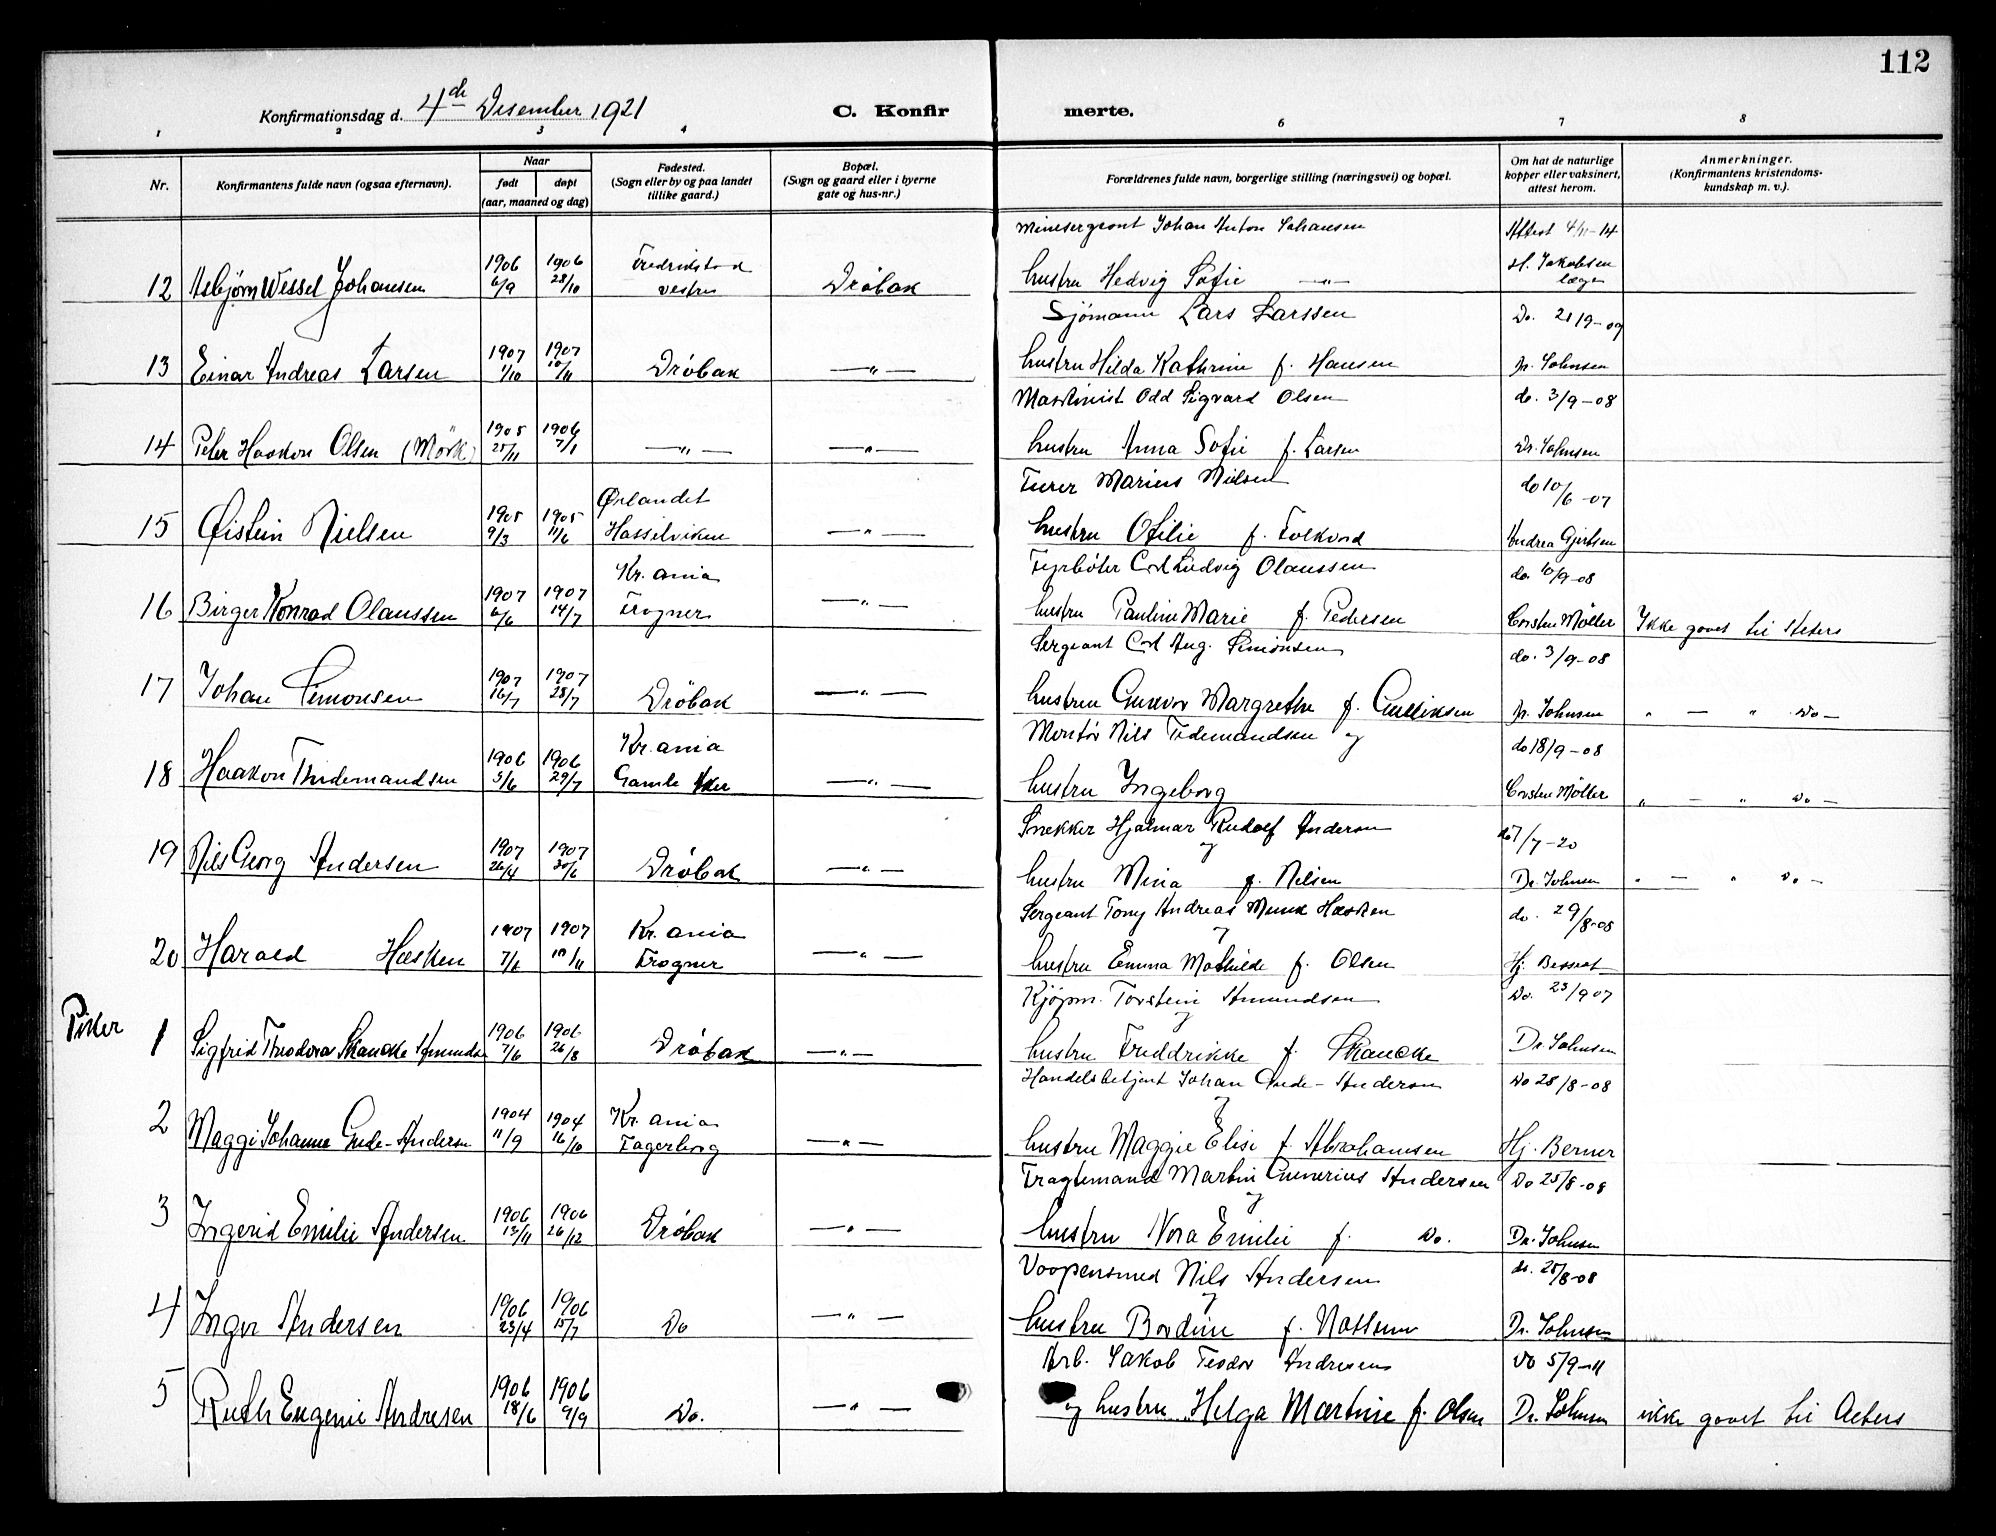 112
Konfirmationsdag d. 4de Desember 1921
C. Konfir merte.
1 2 3 4 6 7 8
Nr.
Konfirmantens fulde navn (ogsaa efternavn).
Naar
født døpt
(aar, maaned og dag)
Fødested.
(Sogn eller by og paa landet
tillike gaard.)
Bopæl.
(Sogn og gaard eller i byerne
gate og hus-nr.)
Forældrenes fulde navn, borgerlige stilling (næringsvei) og bopæl.
Om hat de naturlige
kopper eller vaksinert,
attest herom.
Anmerkninger.
(Konfirmantens kristendoms-
kundskap m. v.).
Minesergeant Johan Anton Johansen Attest 4/11-14
1906 1906 Fredrikstad H. Jakobsen
12 Asbjørn Wessel Johansen 6/9 28/10 vestre Drøbak hustru Hedvig Sofie —"— læge
Sjömann Lars Larssen Do. 21/9-09
1907 1907
13 Einar Andreas Larsen 1/10 10/11 Drøbak —"— hustru Hilda Kathrine f. Hansen Johnsen
Maskinist Odd Sigvard Olsen do. 3/9-08
1905 1906
14 Peter Haakon Olsen (Mörk) 25/11 7/1 —"— —"— hustru Anna Sofie f. Larsen Dr. Johnsen
Furer Marius Nielsen do 10/6-07
1905 1905 Ørlandet
15 Øistein Nielsen 9/3 11/6 Hasselviken —"— hustru Otilie f. Folkvord Andrea Gjertsen
Fyrbøter Carl Ludvig Olaussen do. 10/9-08
1907 1907 Kr.ania
16 Birger Konrad Olaussen 6/6 14/7 Frogner —"— hustru Pauline Marie f. Pedersen Corsten Möller Ikke gaaet til Alters
Sergeant Carl Aug. Simonsen do. 3/9-08
1907 1907
17 Johan Simonsen 16/7 28/7 Drøbak —"— hustru Gunvor Margrethe f. Gulliksen Johnsen " — " Do —
Montör Nils Tidemandsen og do 18/9-08
1906 1906 Kr.ania
18 Haakon Thidemandsen 5/6 29/7 Gamle Aker —"— hustru Ingeborg Corsten Möller " — " Do —
Snekker Hjalmar Rudolf Andersen do 7/7-20
og
1907 1907
19 Nils Georg Andersen 26/4 30/6 Drøbak —"— hustru Mina f. Nilsen Dr. Johnsen " — " Do —
Sergeant Tony Andreas Munk Hæsken do. 29/8-08
og
1907 1907 Kr.ania
20 Harald Hæsken 7/6 10/11 Frogner —"— hustru Emma Mathilde f. Olsen Hj. Bessat
Kjöpm. Torstein Amundsen Do. 23/9 07
og
Piker
1906 1906
1 Sigfrid Theodora Skancke Amundsen 7/6 26/8 Drøbak —"— hustru Freddrikke f. Skancke Dr. Johnsen
Handelsbetjent Johan Gude-Andersen Do 28/8-08
og
1904 1904 Kr.ania
2 Maggi Johanne Gude-Andersen 11/9 16/10 Fagerborg —"— hustru Maggie Elise f. Abrahamsen Hj. Berner
Fragtemand Martin Gunerius Andersen Do 25/8-08
og
1906 1906
3 Ingerid Emilie Andersen 13/11 26/12 Drøbak —"— hustru Nora Emilie f. Do. Dr. Johnsen
Vaapensmed Nils Andersen do. 25/8-08
og
1906 1906
4 Inger Andersen 23/4 15/7 Do —"— hustru Bordine f. Nossum Dr. Johnsen
Arb. Jakob Teodor Andresen Do 5/9-11
1906 1906
5 Ruth Eugenie Andresen 18/6 9/9 Do. —"— og hustru Helga Martine f. Olsen Dr. Johnsen ikke gaaet til Alters